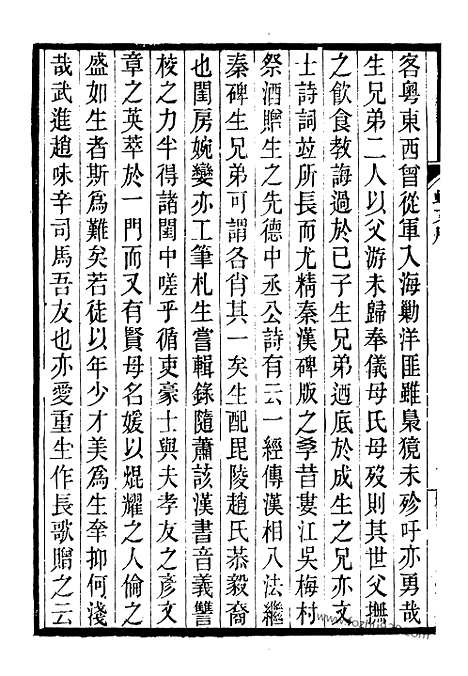 客粤東西曾從軍入海勦洋匪雖梟獍未殄吁亦勇哉
生兄弟二人以父游未歸奉儀母氏母歿則其世父撫
之飲食教誨過於已子生兄弟迺底於成生之兄亦文
士詩詞竝所長而尤精秦漢碑版之學昔婁江吳梅村
祭酒贈生之先德中丞公詩有云一經傳漢相八法繼
秦碑生兄弟可謂各肖其一矣生配毘陵趙氏恭毅裔
也閨房婉孌亦工筆札生嘗輯錄隨蕭該漢書音義讐
校之力半得諸閨中嗟乎循吏豪士與夫孝友之彥文
章之英萃於一門而又有賢母名媛以焜耀之人倫之
盛如生者斯爲難矣若徒以年少才美爲生牽抑何淺
哉武進趙味辛司馬吾友也亦愛重生作長歌贈之云